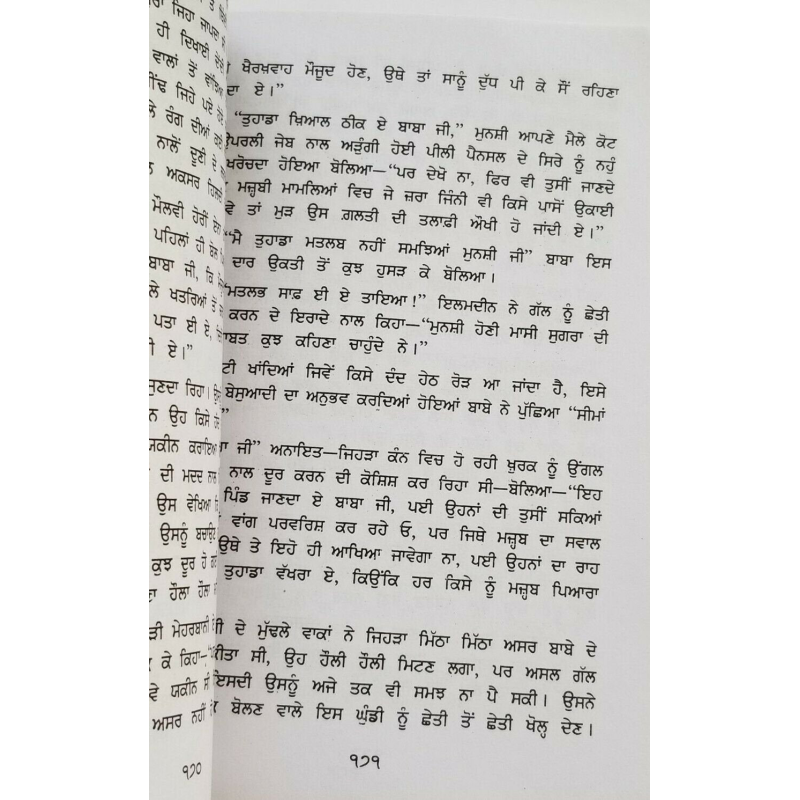 ਰਾ ਜਿਹਾ ਜਾਪਦਾ
ਹੀ ਦਿਖਾਈ ਦੇਂਦੀ
ਵਾਲਾਂ ਤੋਂ
ਜਿਹੇ ਪਏ ਹੋਏ
ਲੇ ਰੰਗ ਦੀਆਂ
ਨਾਲੋਂ ਦੂਣੀ ਦੇ
ਅਕਸਰ
ਮੌਲਵੀ ਹੋਰੀਂ
ਪਹਿਲਾਂ ਹੀ
ਬਾਬਾ ਜੀ, ਕਿ
ਲੇ ਖਤਰਿਆਂ ਤੋਂ
ਪਤਾ ਈ ਏ,
ਈ ਏ।”
ਸੁਣਦਾ ਰਿਹਾ।
ਨ ਉਹ ਕਿਸੇ
ਯਕੀਨ ਕਰਾਇਆ
ਦੀ ਮਦਦ ਨਾਲ
ਉਸ ਵੇਖਿਆ
ਉਸਨੂੰ
ਕੁਝ ਦੂਰ ਹੋ
ਦਾ ਹੌਲਾ ਹੌਲਾ
ੜੀ ਮੇਹਰਬਾਨੀ
ਕੇ ਕਿਹਾ–
ਵੇ ਯਕੀਨ ਸੀ
ਅਸਰ ਨਹੀਂ
੧੭੦
ਖੈਰਖ਼ਵਾਹ ਮੌਜੂਦ ਹੋਣ, ਉਥੇ ਤਾਂ ਸਾਨੂੰ ਦੁੱਧ ਪੀ ਕੇ ਸੌਂ ਰਹਿਣਾ
ਦਾ ਏ।”
“ਤੁਹਾਡਾ ਖ਼ਿਆਲ ਠੀਕ ਏ ਬਾਬਾ ਜੀ,” ਮੁਨਸ਼ੀ ਆਪਣੇ ਮੈਲੇ ਕੋਟ
ਉਪਰਲੀ ਜੇਬ ਨਾਲ ਅੜੁੰਗੀ ਹੋਈ ਪੀਲੀ ਪੈਨਸਲ ਦੇ ਸਿਰੇ ਨੂੰ ਨਹੁੰ
ਖਰੋਚਦਾ ਹੋਇਆ ਬੋਲਿਆ–“ਪਰ ਦੇਖੋ ਨਾ, ਫਿਰ ਵੀ ਤੁਸੀਂ ਜਾਣਦੇ
ਮਜ਼੍ਹਬੀ ਮਾਮਲਿਆਂ ਵਿਚ ਜੇ ਜ਼ਰਾ ਜਿੰਨੀ ਵੀ ਕਿਸੇ ਪਾਸੋਂ ਉਕਾਈ
ਵੇ ਤਾਂ ਮੁੜ ਉਸ ਗ਼ਲਤੀ ਦੀ ਤਲਾਫ਼ੀ ਔਖੀ ਹੋ ਜਾਂਦੀ ਏ।”
“ਮੈ ਤੁਹਾਡਾ ਮਤਲਬ ਨਹੀਂ ਸਮਝਿਆਂ ਮੁਨਸ਼ੀ ਜੀ” ਬਾਬਾ ਇਸ
ਦਾਰ ਉਕਤੀ ਤੋਂ ਕੁਝ ਹੁਸੜ ਕੇ ਬੋਲਿਆ।
“ਮਤਲਭ ਸਾਫ਼ ਈ ਏ ਤਾਇਆ!” ਇਲਮਦੀਨ ਨੇ ਗੱਲ ਨੂੰ ਛੇਤੀ
ਕਰਨ ਦੇ ਇਰਾਦੇ ਨਾਲ ਕਿਹਾ–“ਮੁਨਸ਼ੀ ਹੋਣੀ ਮਾਸੀ ਸੁਗਰਾ ਦੀ
ਾਬਤ ਕੁਝ ਕਹਿਣਾ ਚਾਹੁੰਦੇ ਨੇ।”
ਟੀ ਖਾਂਦਿਆਂ ਜਿਵੇਂ ਕਿਸੇ ਦੰਦ ਹੇਠ ਰੋੜ ਆ ਜਾਂਦਾ ਹੈ, ਇਸੇ
ਬੇਸੁਆਦੀ ਦਾ ਅਨੁਭਵ ਕਰਦਿਆਂ ਹੋਇਆਂ ਬਾਬੇ ਨੇ ਪੁੱਛਿਆ “ਸੀਮਾਂ
”
ਾ ਜੀ” ਅਨਾਇਤ–ਜਿਹੜਾ ਕੰਨ ਵਿਚ ਹੋ ਰਹੀ ਖ਼ੁਰਕ ਨੂੰ ਉਂਗਲ
ਨਾਲ ਦੂਰ ਕਰਨ ਦੀ ਕੋਸ਼ਿਸ਼ ਕਰ ਰਿਹਾ ਸੀ–ਬੋਲਿਆ–“ਇਹ
ਪਿੰਡ ਜਾਣਦਾ ਏ ਬਾਬਾ ਜੀ, ਪਈ ਉਹਨਾਂ ਦੀ ਤੁਸੀਂ ਸਕਿਆਂ
ਵਾਂਗ ਪਰਵਰਿਸ਼ ਕਰ ਰਹੇ ਓ, ਪਰ ਜਿਥੇ ਮਜ਼੍ਹਬ ਦਾ ਸਵਾਲ
ਉਥੇ ਤੇ ਇਹੋ ਹੀ ਆਖਿਆ ਜਾਵੇਗਾ ਨਾ, ਪਈ ਉਹਨਾਂ ਦਾ ਰਾਹ
ਤੁਹਾਡਾ ਵੱਖਰਾ ਏ, ਕਿਉਂਕਿ ਹਰ ਕਿਸੇ ਨੂੰ ਮਜ਼੍ਹਬ ਪਿਆਰਾ
ੀ ਦੇ ਮੁੱਢਲੇ ਵਾਕਾਂ ਨੇ ਜਿਹੜਾ ਮਿੱਠਾ ਮਿੱਠਾ ਅਸਰ ਬਾਬੇ ਦੇ
ਕੀਤਾ ਸੀ, ਉਹ ਹੌਲੀ ਹੌਲੀ ਮਿਟਣ ਲਗਾ, ਪਰ ਅਸਲ ਗੱਲ
ਇਸਦੀ ਉਸਨੂੰ ਅਜੇ ਤਕ ਵੀ ਸਮਝ ਨਾ ਪੈ ਸਕੀ। ਉਸਨੇ
ਬੋਲਣ ਵਾਲੇ ਇਸ ਘੁੰਡੀ ਨੂੰ ਛੇਤੀ ਤੋਂ ਛੇਤੀ ਖੋਲ੍ਹ ਦੇਣ।
੧੭੧